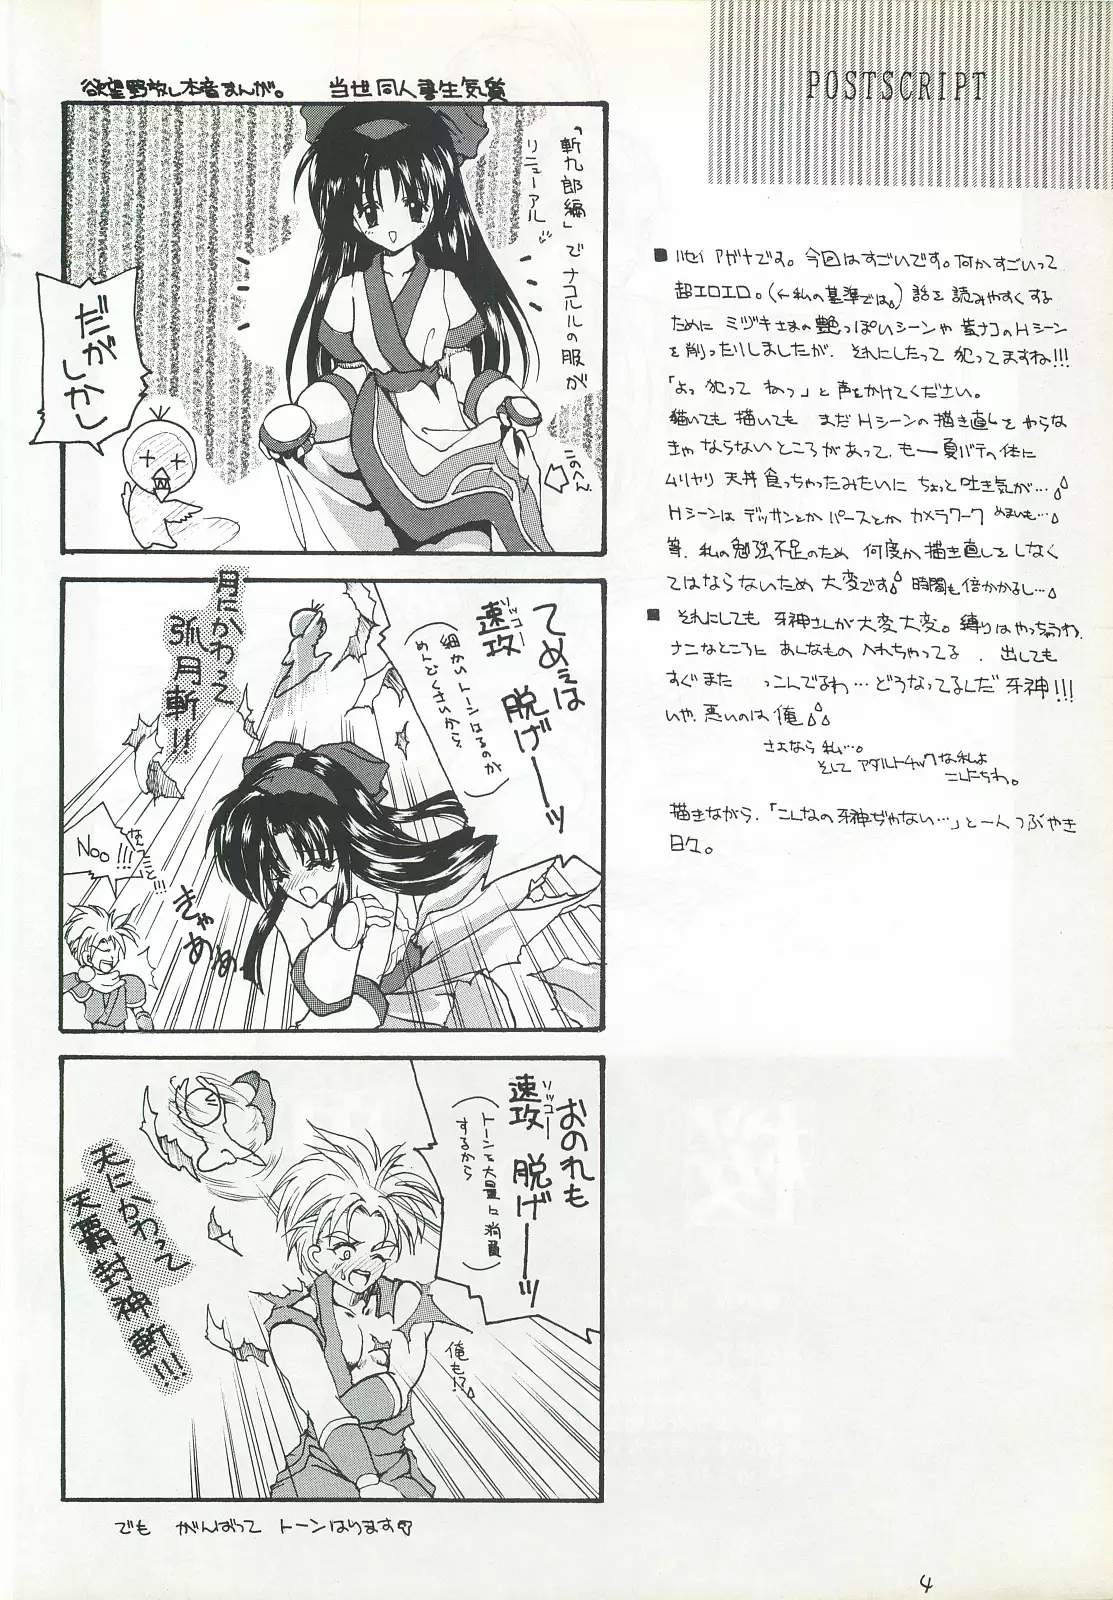 POSTSCRIPT
欲望野放し本音まんが。 当世同人書生気質
「斬九郎編」で
リニューアル
ナコルルの服が
このへん
だが
しかし
てめえは
速攻
ソッコー
脱げーーッ
(細かいトーンはるのが
めんどくさいから)
月にかわって
弧月斬!!
なんてこと!!!
Noo!!!
きゃあぁぁ
おのれも
速攻
ソッコー
脱げーーッ
(トーンを大量に消費
するから)
天にかわって
天覇封神斬!!!
俺も!?
でも がんばって トーンはります
■ハセイアガナです。今回はすごいです。何かすごいって
超エロエロ。(←私の基準では)話を読みやすくする
ために ミヅキさまの艶っぽいシーンや 葉ナコのHシーン
を削ったりしましたが、それにしたって 犯ってますね!!!
「よっ 犯って ねっ」と声をかけてください。
描いても 描いても まだHシーンの描き直しをやらな
きゃならないところがあって、も一夏バテの体に
ムリヤリ 天丼食っちゃったみたいに ちょっと吐き気が…
Hシーンは デッサンとか パースとか カメラワーク めまいも…
等、私の勉強不足のため 何度か描き直しをしなく
てはならないため 大変です 時間も倍かかるし…
■それにしても 牙神さんが大変大変。縛りはやっちゃうわ、
ナニなところに あんなもの 入れちゃってる、出しても
すぐまた っこんでるわ…どうなってるんだ牙神!!!
いや、悪いのは俺
さよなら私…。
そして アダルトチックな私よ
こんにちわ。
描きながら、「こんなの牙神ぢゃない…」と一人つぶやき
日々。
4